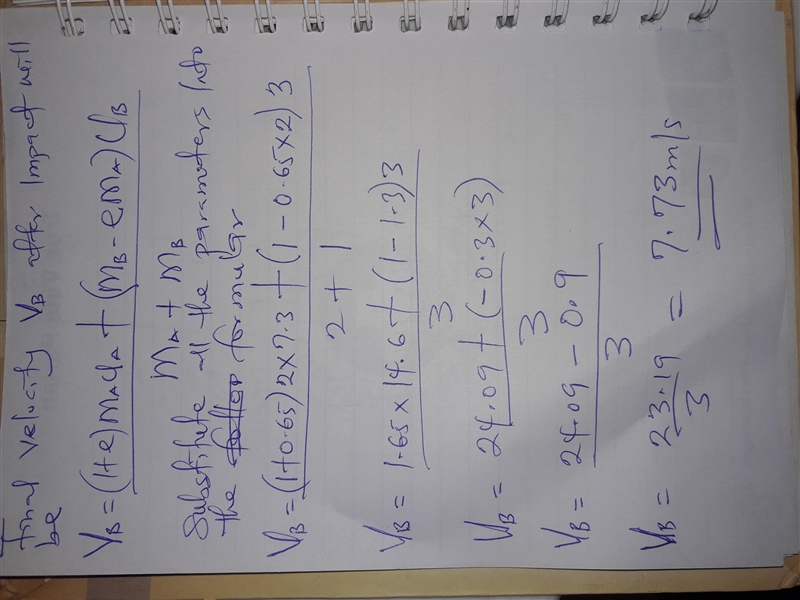 Final velocity VB after Impact will
be
VB = (1+e)mAuA + (mB - emA)UB
mA + mB
Substitute all the parameters Into
the formular
VB = (1+0.65)2×7.3 + (1 - 0.65×2)3
2 + 1
VB = 1.65 × 14.6 + (1 - 1.3)3
3
VB = 24.09 + (-0.3×3)
3
VB = 24.09 - 0.9
3
VB = 23.19 = 7.73m/s
3